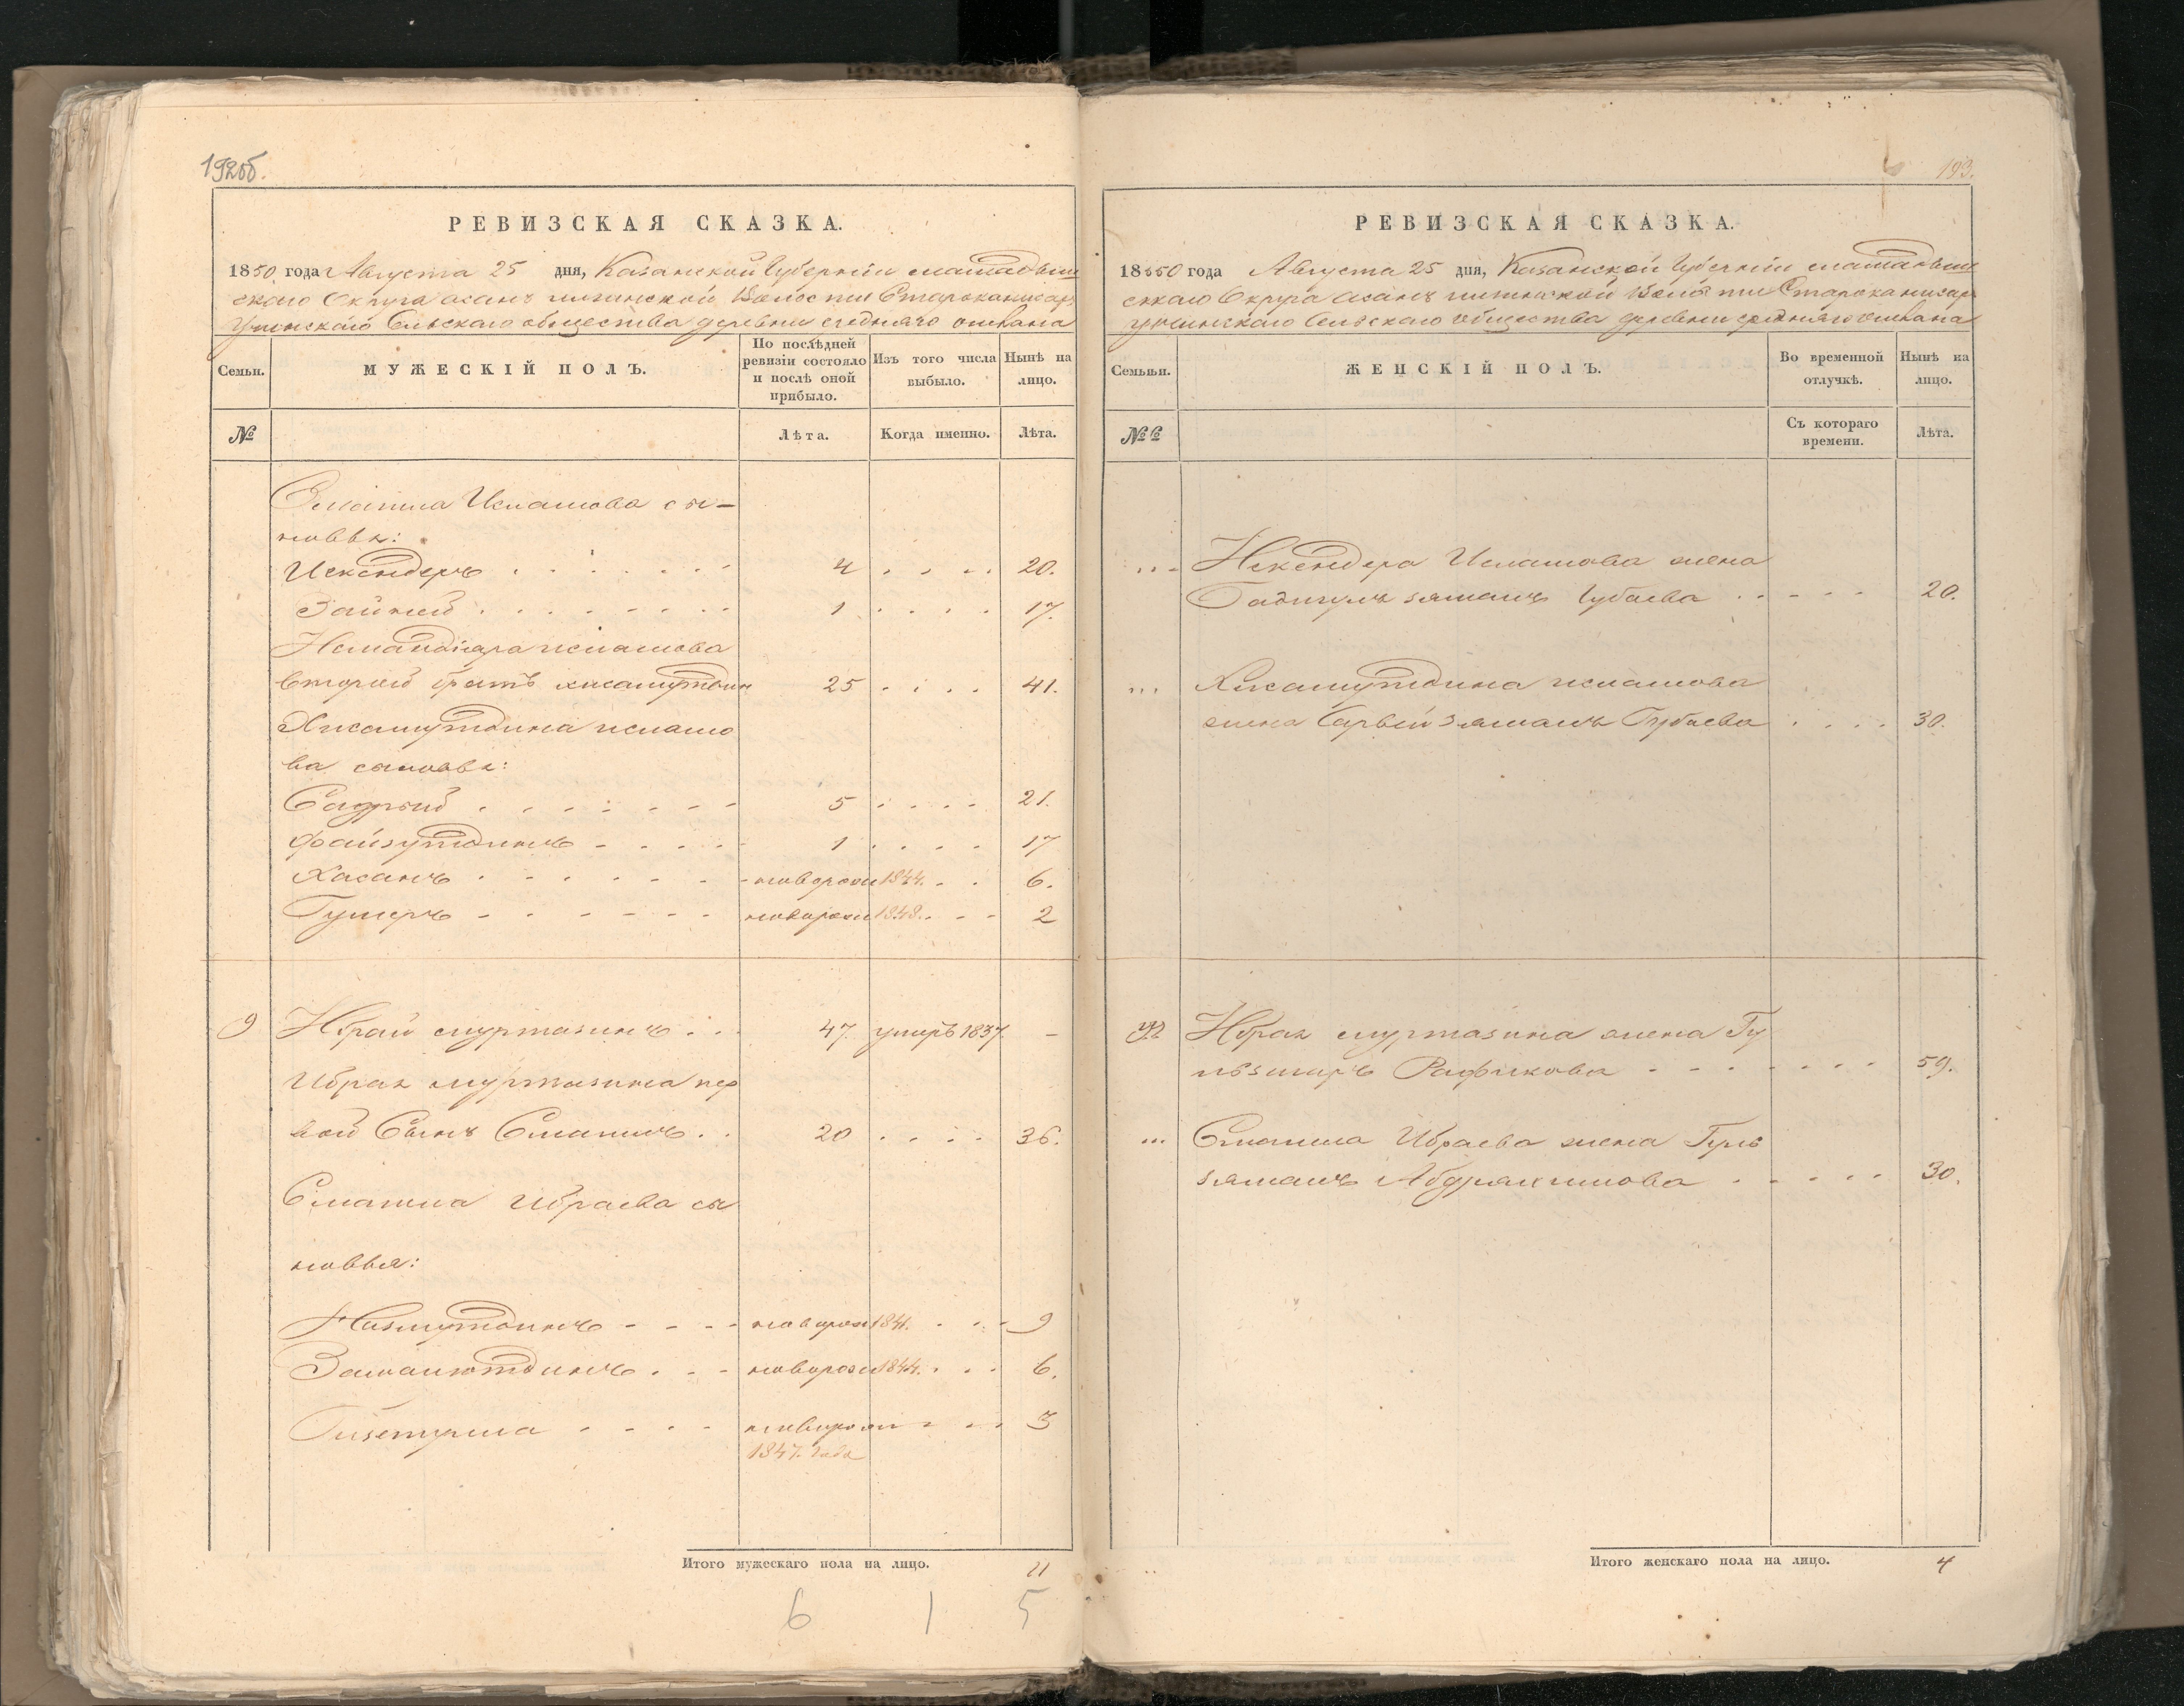 192об.
РЕВИЗСКАЯ СКАЗКА.
1850 года Августа 25 дня, Казанской Губерніи мамадыш
скаго Округа асанъ Волости
Сельскаго общества деревни средняго
Семьи.
МУЖЕСКІЙ ПОЛЪ.
По послѣдней ревизіи состояло и послѣ оной прибыло.
Изъ того числа выбыло.
Нынѣ на лицо.
№
Лѣта.
Когда именно.
Лѣта.
Смаила Исмашова сы-
новья:
Искендеръ 4 20.
Зайней 1 17.
исмашова
Второй братъ хисамутдин 25 41.
Хисамутдина исмашо
ва сыновья:
Садрый 5 21.
Файзутдинъ 1 17
Хасанъ новорож 1844. 6.
Гумеръ новорож 1848. 2
9 Ибрай муртазинъ 47 умеръ 1837. -
Ибрая муртазина пер
вой Сынъ Смаилъ 20 36.
Смаила Ибраева сы
новья:
Низмутдинъ новорож 1841. 9
Замалютдинъ новорож 1844. 6.
новорож 3
1847. года
Итого мужескаго пола на лицо. 11
6 1 5
193.
РЕВИЗСКАЯ СКАЗКА.
1850 года Августа 25 дня, Казанской Губерніи мамадыш
скаго Округа асанъ Волости
Сельскаго общества деревни средняго
Семьи.
ЖЕНСКІЙ ПОЛЪ.
Во временной отлучкѣ.
Нынѣ на лицо.
№
Съ котораго времени.
Лѣта.
Искендера Исмашова жена
Губаева 20.
Хисамутдина исмашова
жена Губаева 30.
Ибрая муртазина жена Гу
Рафикова 59.
Смаила Ибраева жена Гуль
зяманъ Абдряхимова 30.
Итого женскаго пола на лицо. 4